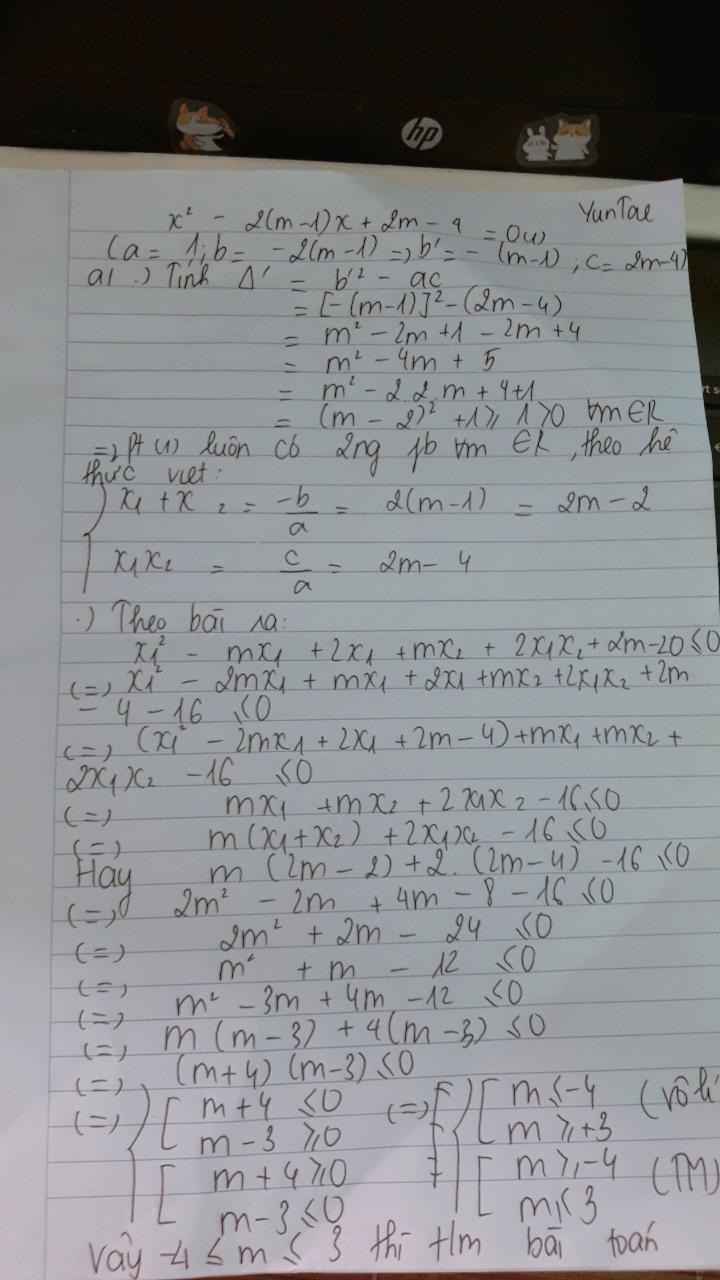 hp
YunTae
x² - 2(m-1)x + 2m - 4 = 0 (1)
(a = 1; b = -2(m-1) => b' = - (m-1), c = 2m-4)
a) .) Tính Δ' = b'² - ac
= [-(m-1)]² - (2m-4)
= m² - 2m + 1 - 2m + 4
= m² - 4m + 5
= m² - 2.2.m + 4+1
= (m - 2)² + 1 ≥ 1 > 0 ∀m ∈ R
=> pt (1) luôn có 2ng pb ∀m ∈ R, theo hê
thưć viet:
{ x₁ + x₂ = -b/a = 2(m-1) = 2m - 2
x₁x₂ = c/a = 2m - 4
.) Theo bāi ra:
x₁² - mx₁ + 2x₁ + mx₂ + 2x₁x₂ + 2m-20 ≤ 0
(=) x₁² - 2mx₁ + mx₁ + 2x₁ + mx₂ + 2x₁x₂ + 2m
- 4 - 16 ≤ 0
(=) (x₁² - 2mx₁ + 2x₁ + 2m - 4) + mx₁ + mx₂ +
2x₁x₂ - 16 ≤ 0
(=) mx₁ + mx₂ + 2x₁x₂ - 16 ≤ 0
(=) m(x₁+x₂) + 2x₁x₂ - 16 ≤ 0
Hay m (2m - 2) + 2.(2m-4) - 16 ≤ 0
(=) 2m² - 2m + 4m - 8 - 16 ≤ 0
(=) 2m² + 2m - 24 ≤ 0
(=) m² + m - 12 ≤ 0
(=) m² - 3m + 4m - 12 ≤ 0
(=) m (m-3) + 4(m-3) ≤ 0
(=) (m+4) (m-3) ≤ 0
(=) { [ m+4 ≤ 0 (=) { [ m ≤ -4 (vô lí
m - 3 ≥ 0 m ≥ +3
[ m + 4 ≥ 0 [ m ≥ -4 (TM)
m - 3 ≤ 0 m ≤ 3
Vậy -4 ≤ m ≤ 3 thī tlm bāi toań